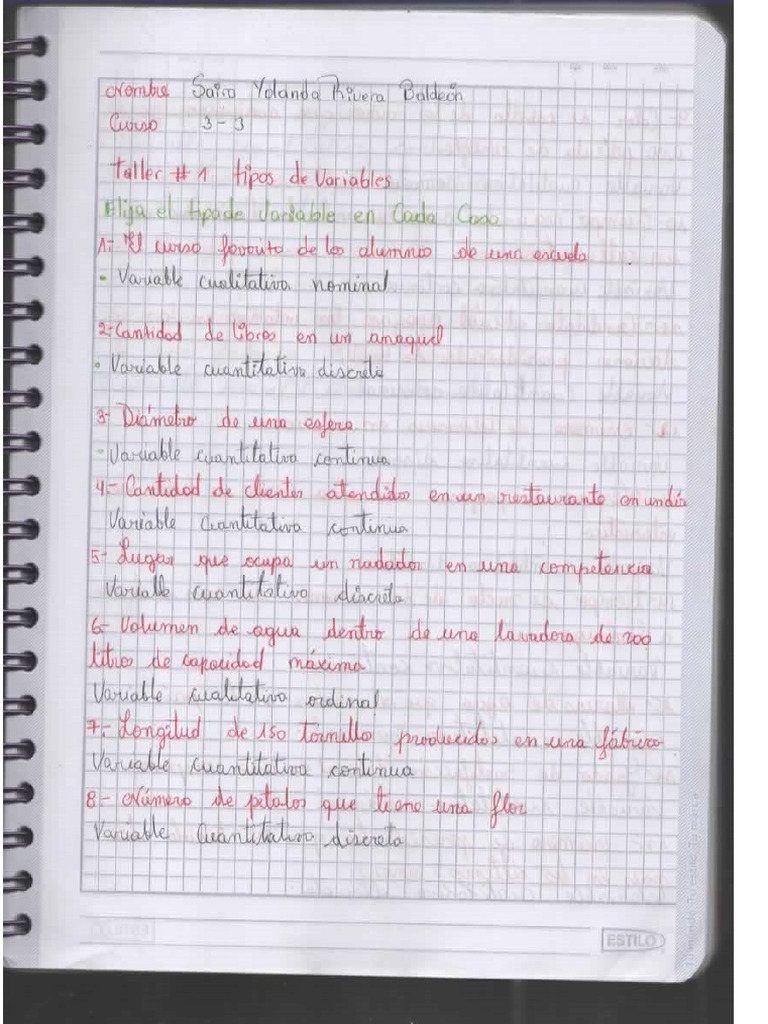 Nombre Saira Yolanda Rivera Baldeón
Curso 3-3
Taller #1 tipos de Variables
Elija el tipo de Variable en Cada Caso
1- El curso favorito de los alumnos de una escuela
- Variable cualitativa nominal
2- Cantidad de libros en un anaquel
- Variable cuantitativa discreta
3- Diámetro de una esfera
- Variable cuantitativa continua
4- Cantidad de clientes atendidos en un restaurante en un día
Variable cuantitativa continua
5- Lugar que ocupa un nadador en una competencia
Variable cuantitativa discreta
6- Volumen de agua dentro de una lavadora de 200
litros de capacidad máxima
Variable cualitativa ordinal
7- Longitud de 150 tornillo producidos en una fábrica
Variable cuantitativa continua
8- Número de petalos que tiene una flor
Variable cuantitativa discreta
ESTILO